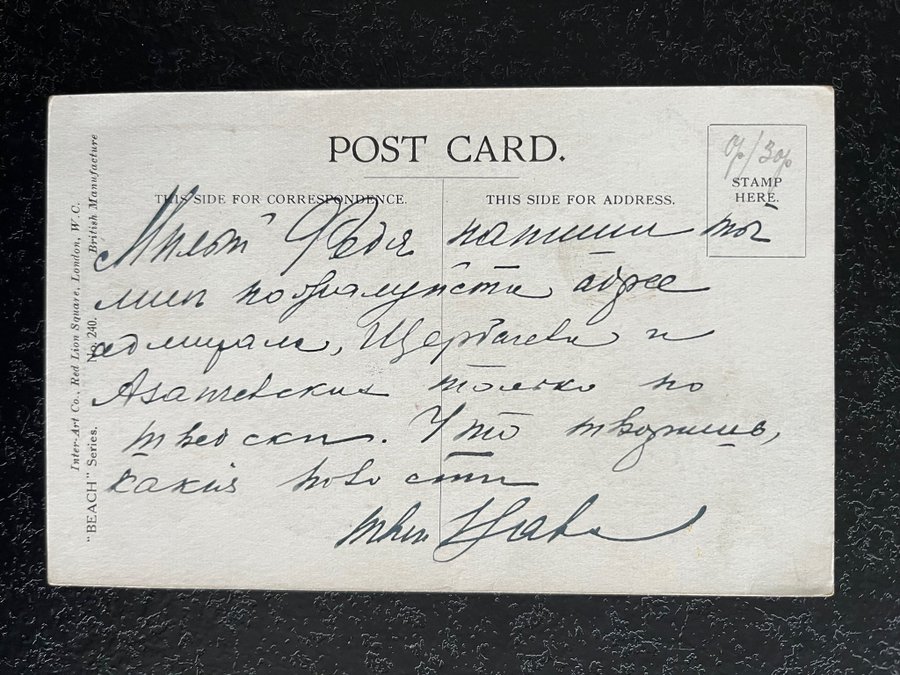 POST CARD.
THIS SIDE FOR CORRESPONDENCE.
THIS SIDE FOR ADDRESS.
STAMP
HERE.
Милый Федя напиши ты
мне пожалуйста адрес
Щербачева и
Азатевских только по
шведски. Что творишь,
какия новости
твой
Inter-Art Co., Red Lion Square, London, W.C.
"BEACH" Series. No. 240. British Manufacture